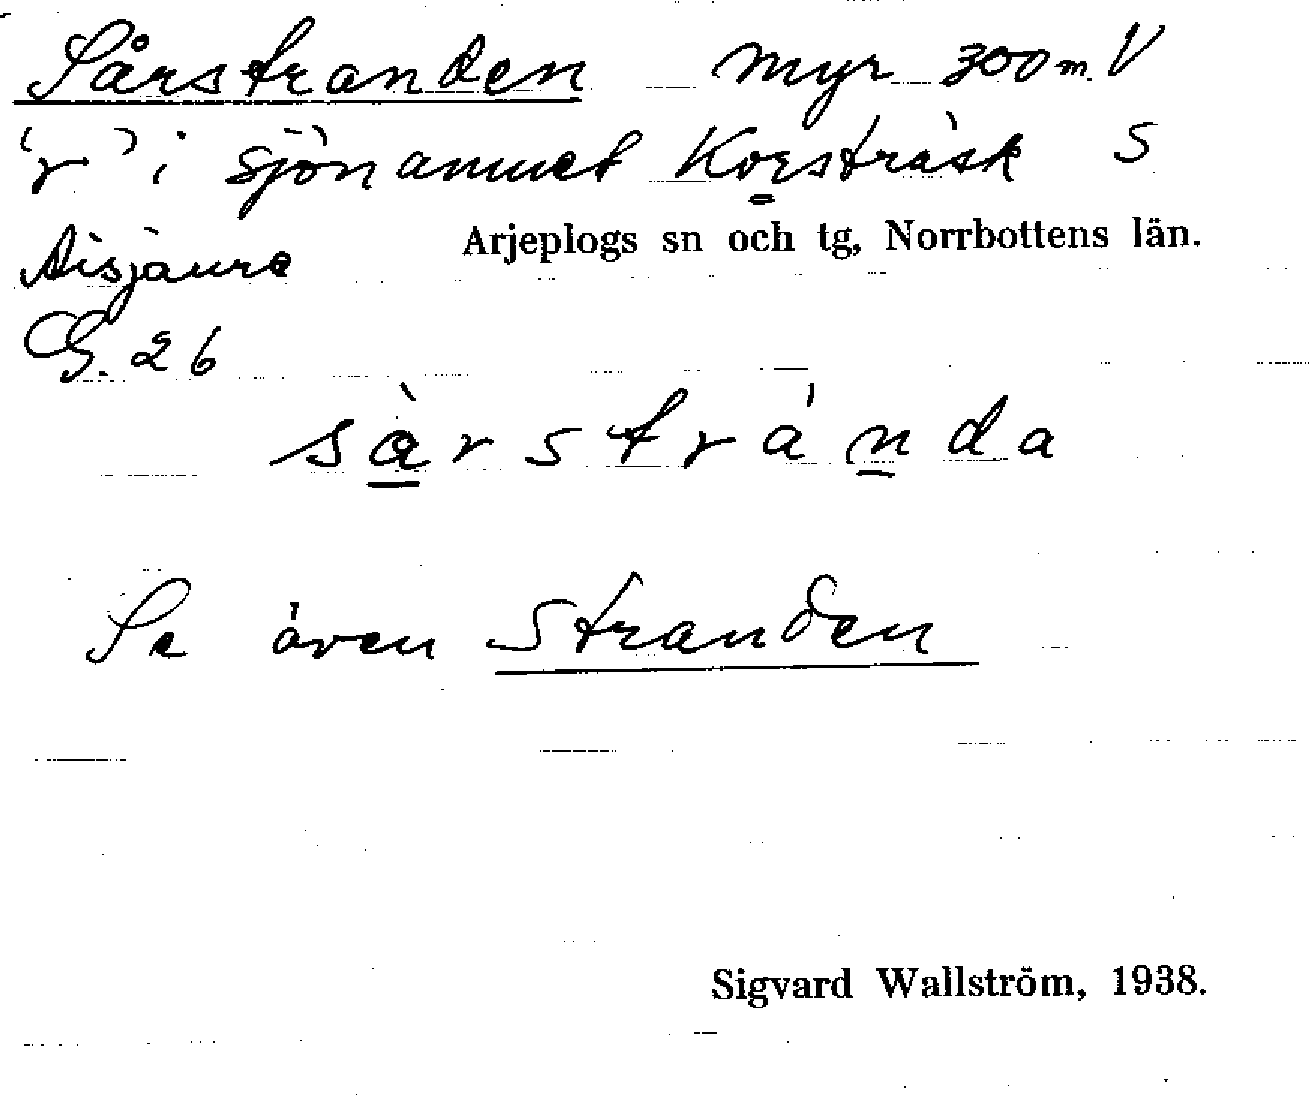 Sårstranden myr 300 m. V
'r' i sjönamnet Korsträsk S
Arjeplogs sn och tg, Norrbottens län.
Aisjaure
G. 26
sàrstránda
Se även Stranden
Sigvard Wallström, 1938.